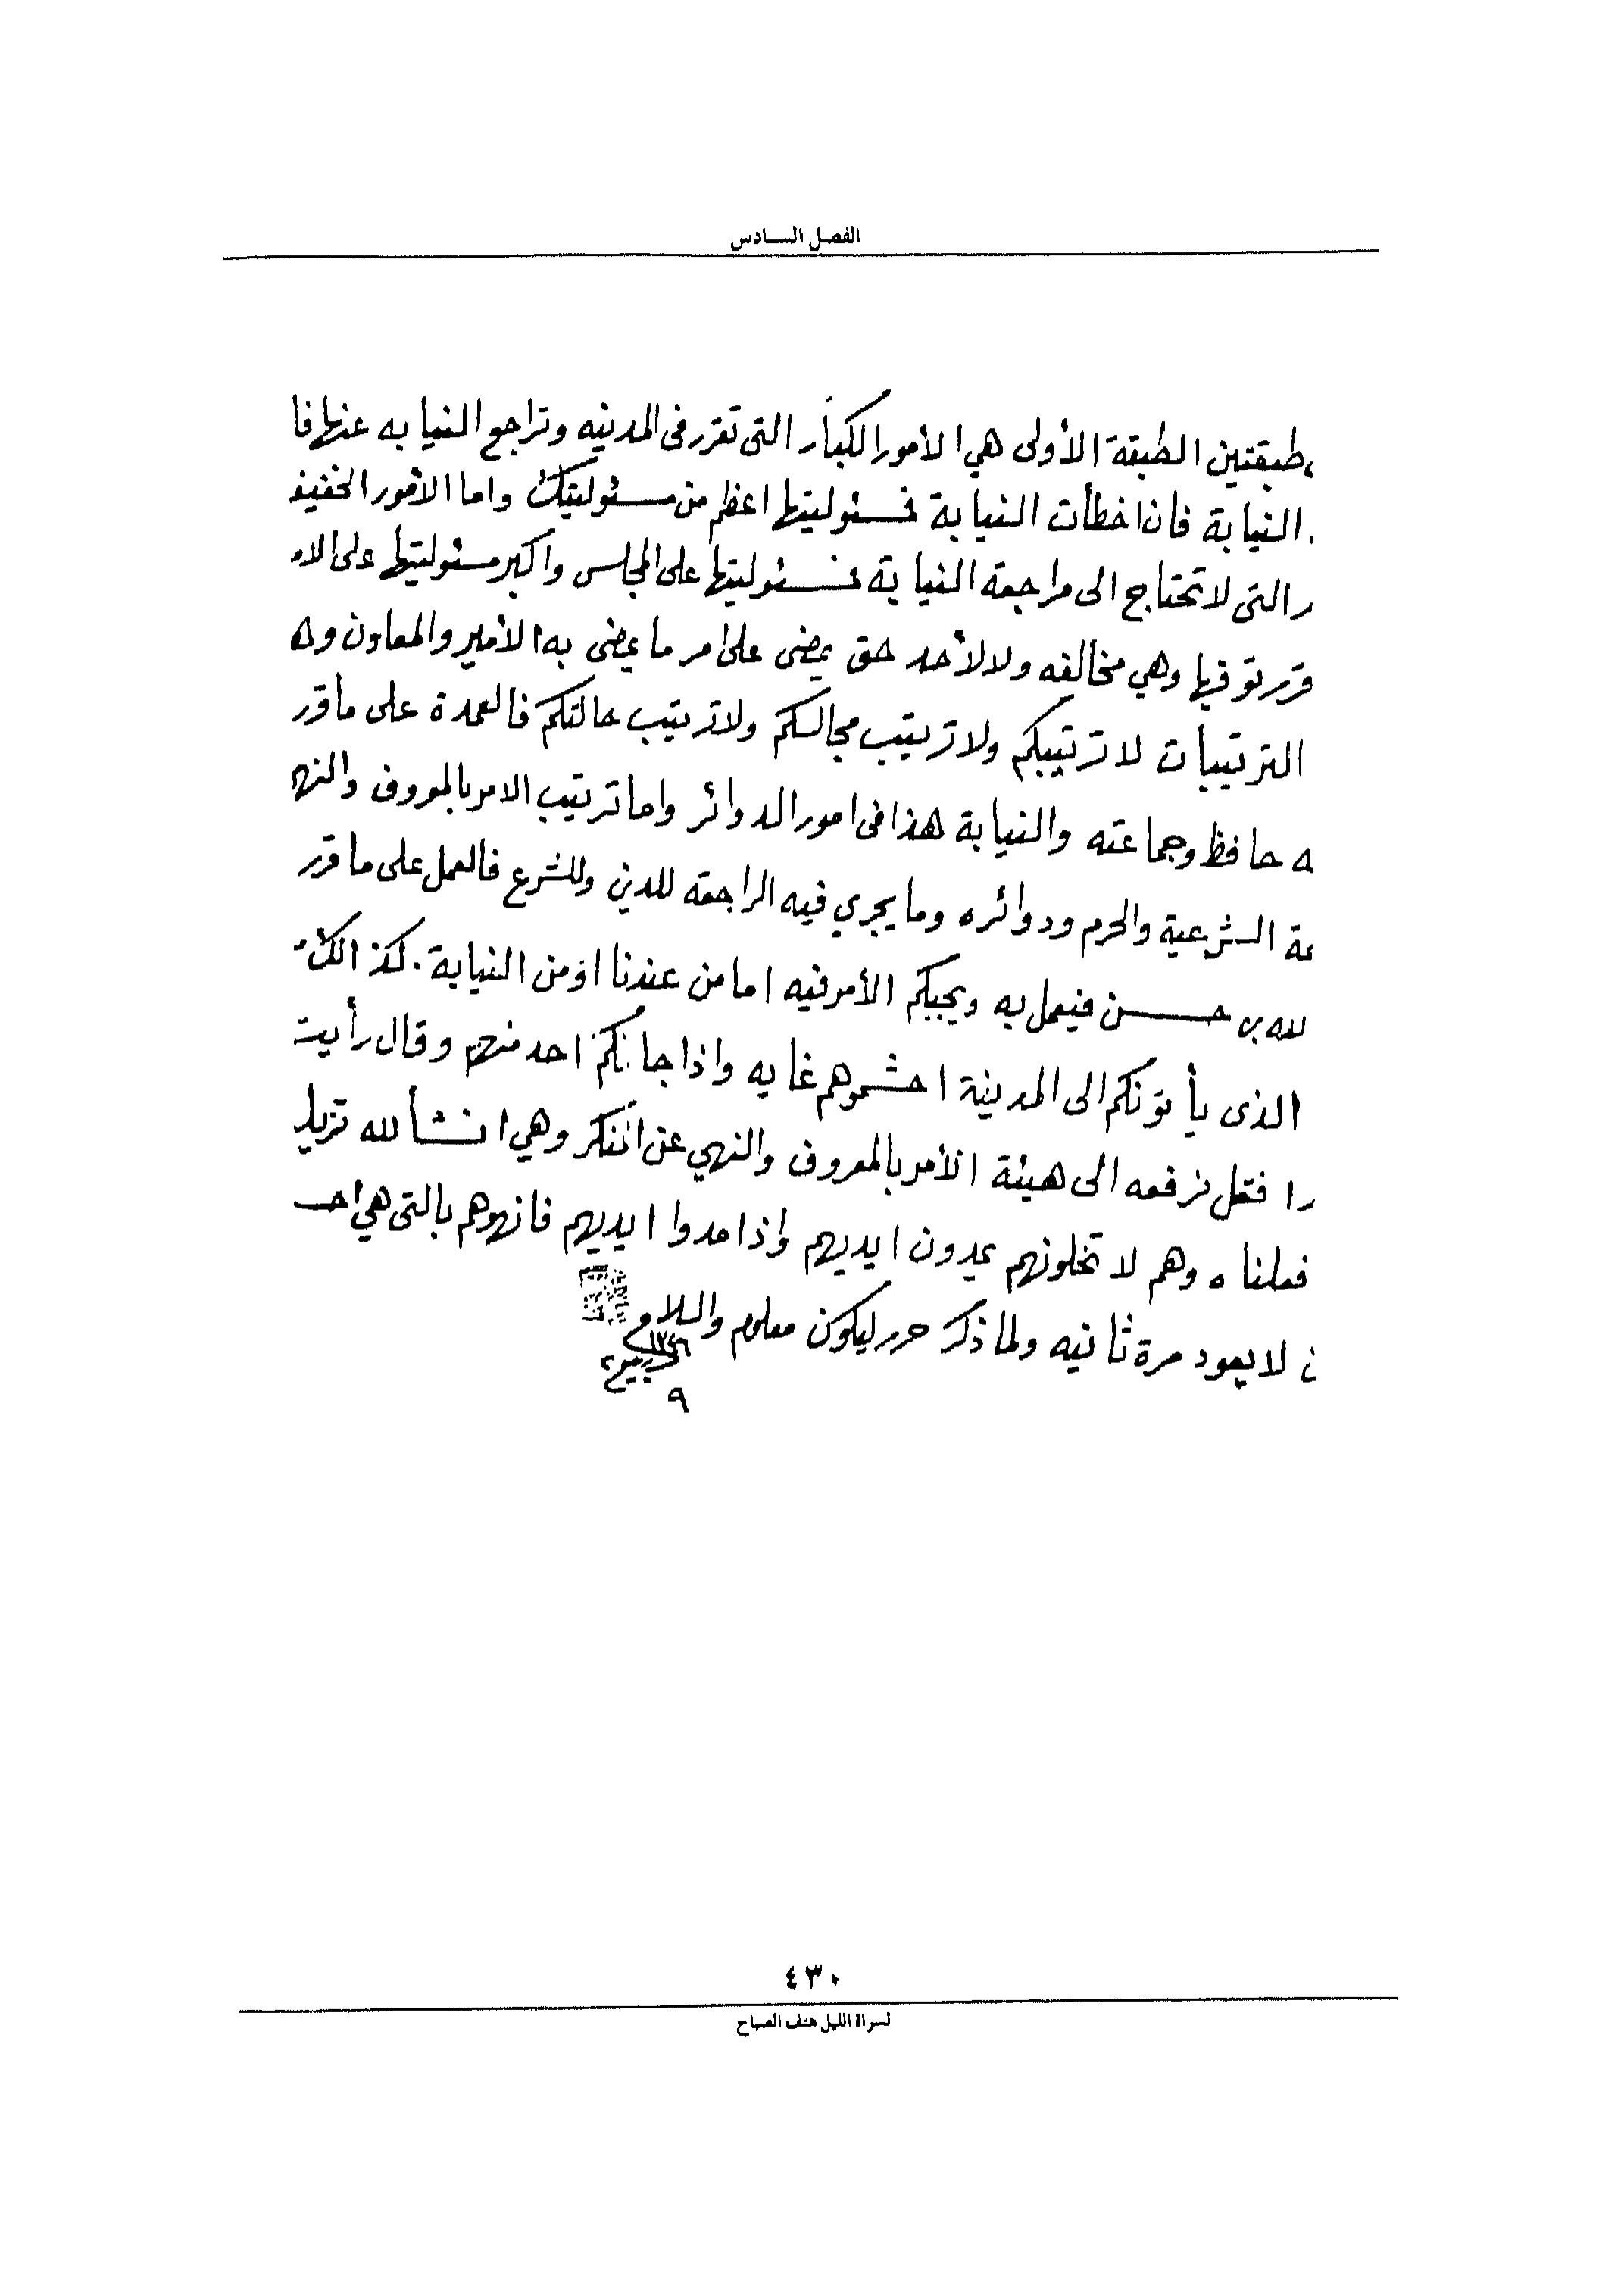 الفصل السادس
طبقتين الطبقة الأولى هي الأمور الكبار التى تقرر فى المدنيه وتراجع النيا به عنها فا
النيابة فان اخطأت النيابة فمسئوليتها اعظم من مسئوليتك واما الأمور الخفيف
ر التى لا تحتاج الى مراجعة النيابة فمسئوليتها على المجلس واكبر مسئوليتها على الام
قرر توفيها وهي مخالفه ولا لأحد حق يمضى على امر ما يمضى به الأمير والمعاون وه
الترتيبات لا ترتيبكم ولا ترتيب مجالسكم ولا ترتيب حالتكم فالعمدة على ما قرر
ه حافظ وجماعته والنيابة هذا فى امور الدوائر واما ترتيب الامر بالمعروف والنه
عة الشرعية والحرم ودوائره وما يجري فيه الراجعة للدين وللشرع فالعمل على ما قرر
لله بن حسن فيعمل به ويجيكم الأمر فيه اما من عندنا او من النيابة . كذالك
الذى يأتونكم الى المدينة احشموهم غايه واذا جائكم احد منهم وقال رأيت
را فقل نرفعه الى هيئة الأمر بالمعروف والنهي عن المنكر وهي انشألله تزيل
فعلناه وهم لا تخلونهم يمدون ايديهم واذا مدوا ايديهم فانهوهم بالتى هي احسـ
ن لا يعود مرة ثانيه ولما ذكر حرر ليكون معلوم والسلام
ربيع ٢
٩
٤٣٠
لسراة الليل هتف الصباح